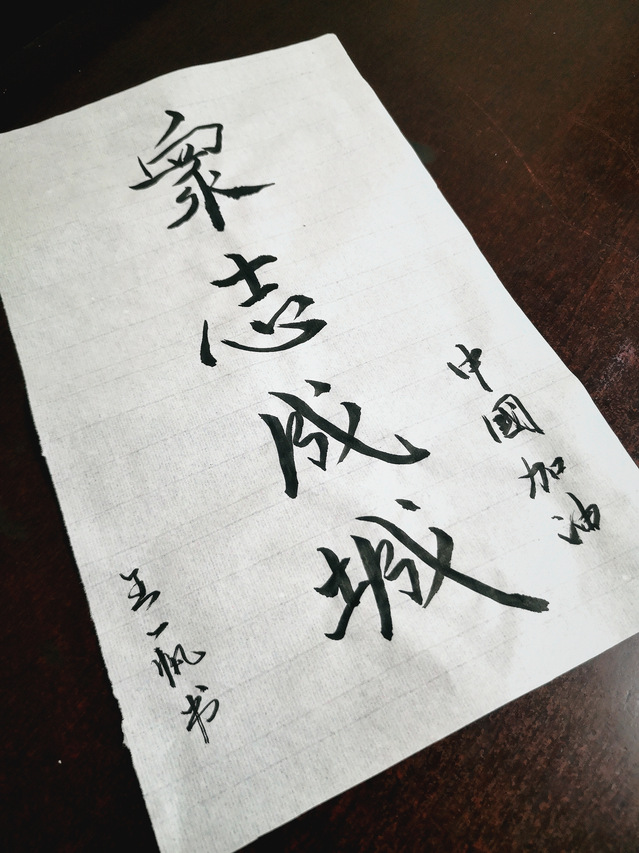 中國加油
衆志成城
王一帆书